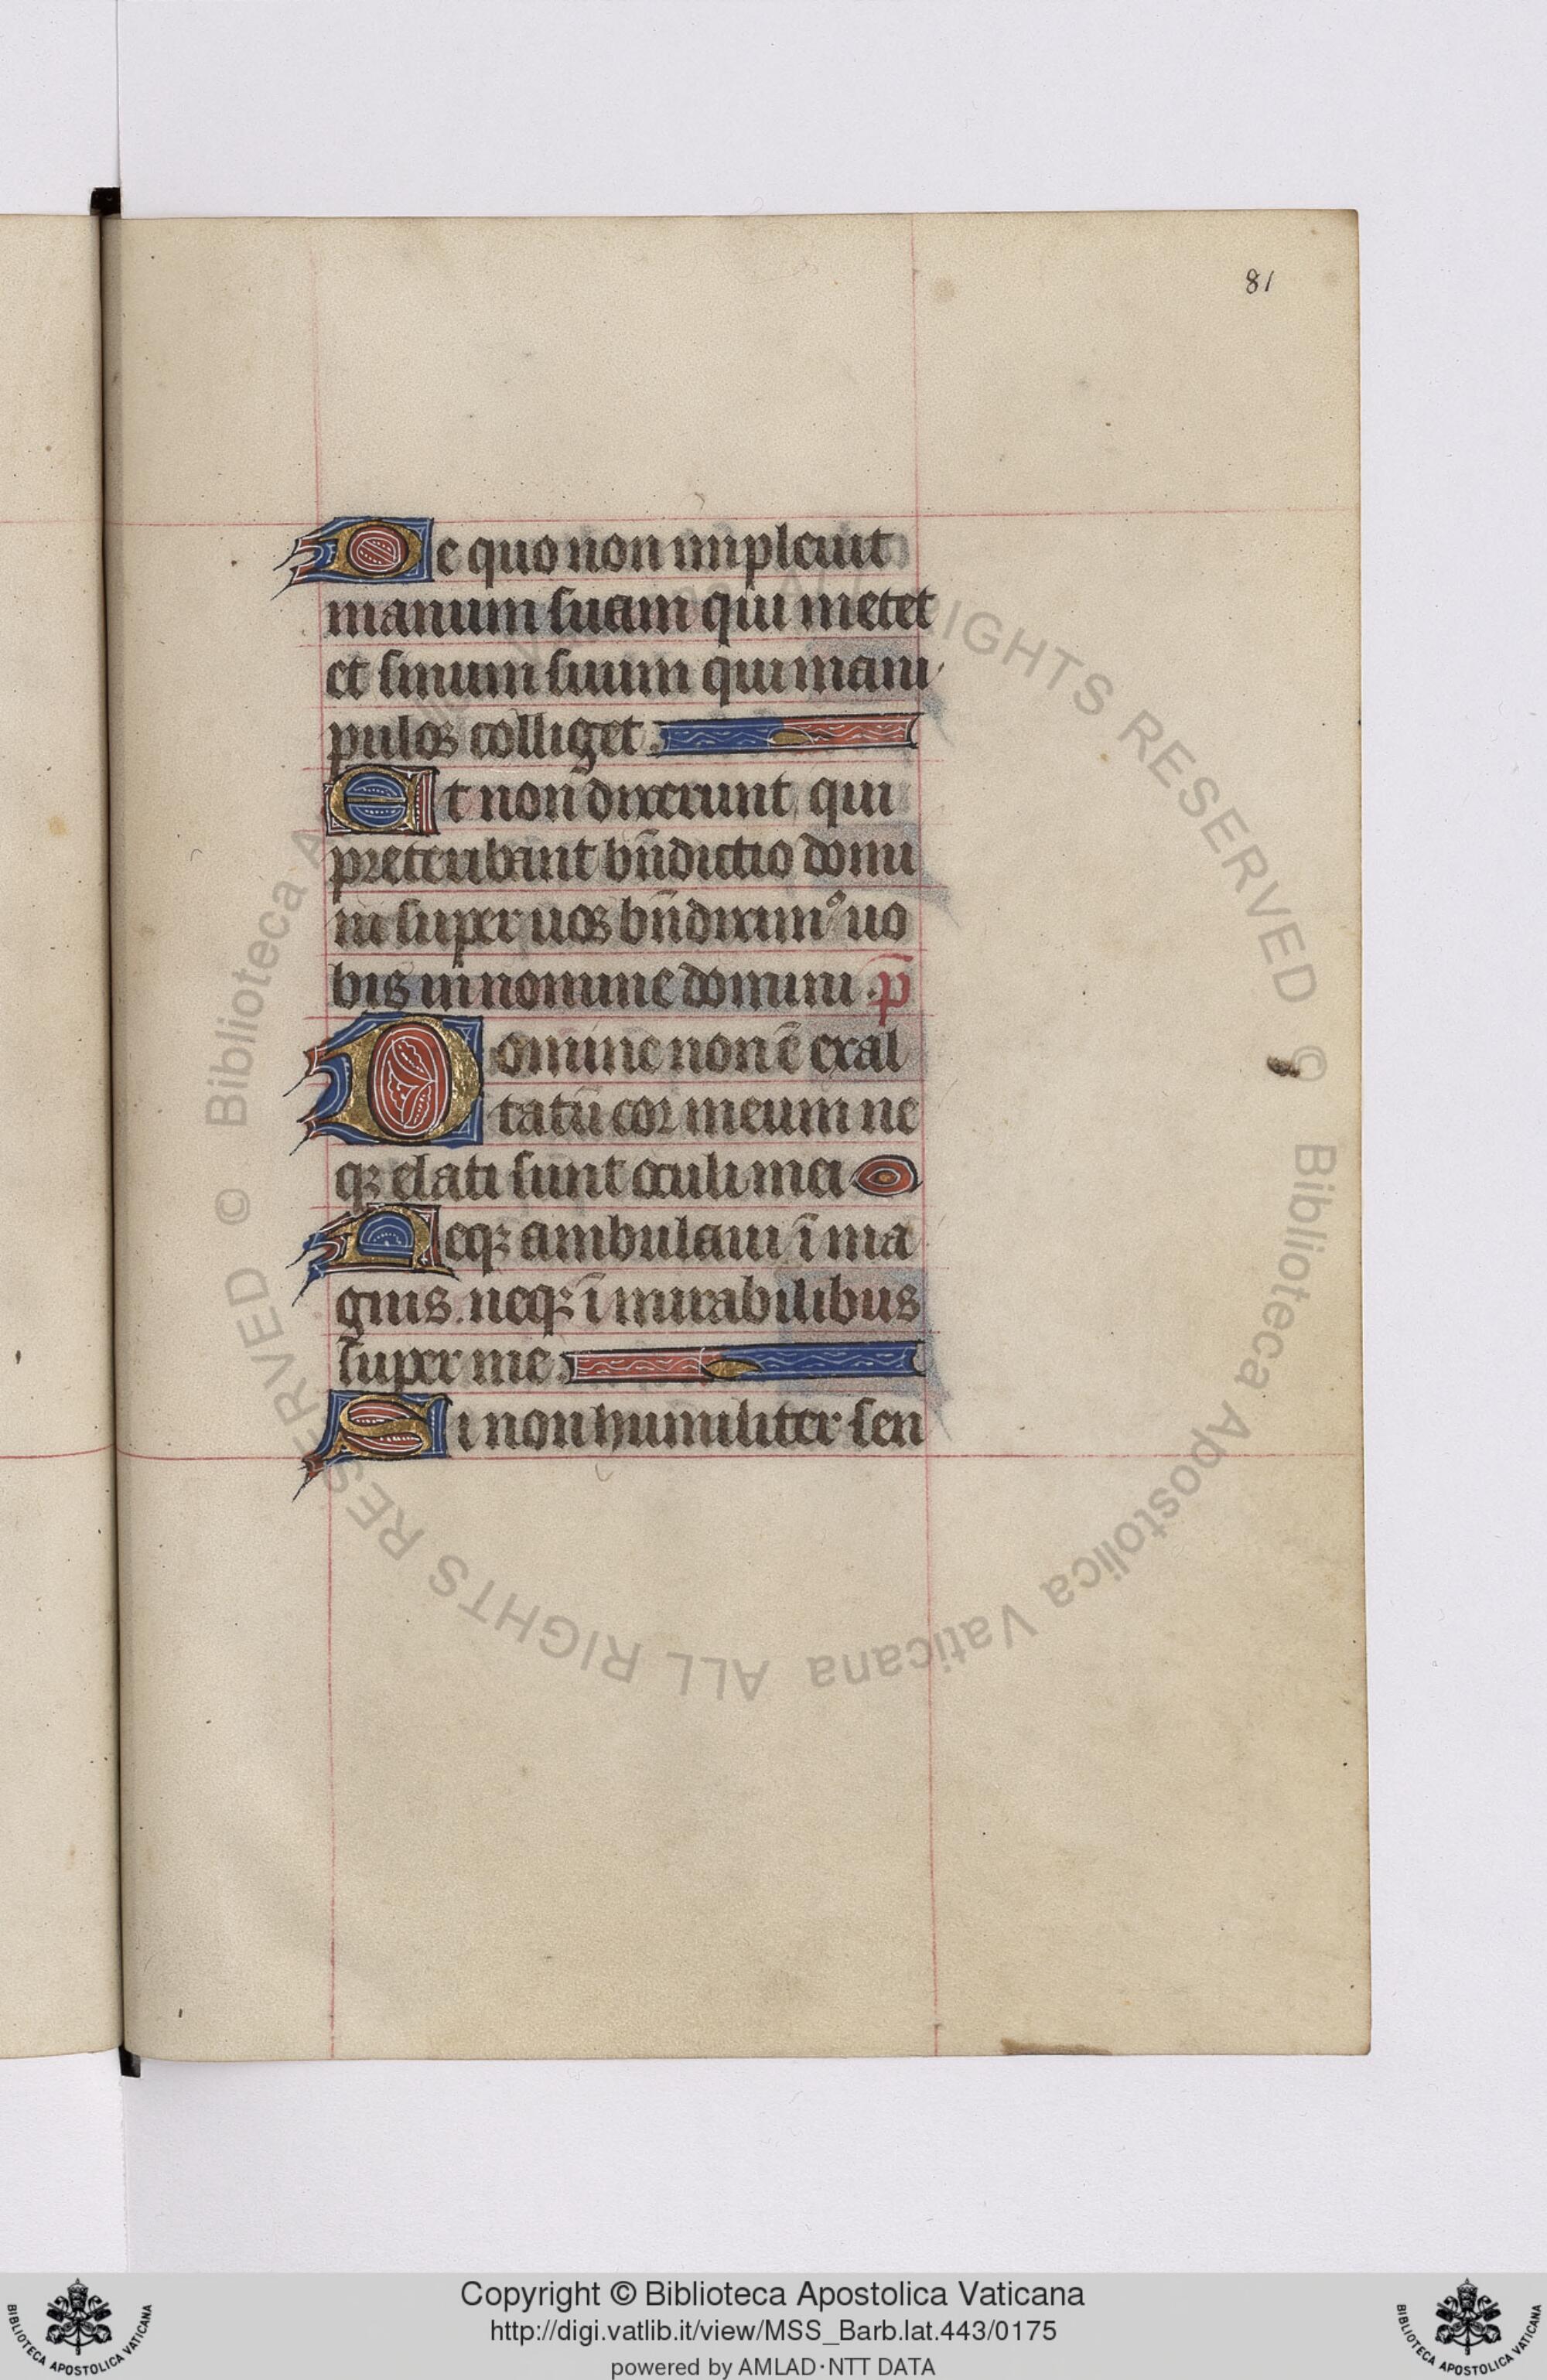 81
De quo non impleuit
manum suam qui metet
et sinum suum qui mani
pulos colliget
Et non dixerunt qui
preteribant bn̄dictio domi
ni super uos bn̄diximꝰ uo
bis in nomine domini . p̄
Domine non ē exal
tatū cor meum ne
qꝫ elati sunt oculi mei
Neqꝫ ambulaui ī ma
gnis . neqꝫ ī mirabilibus
super me
Si non humiliter sen
© Biblioteca Apostolica Vaticana ALL RIGHTS RESERVED
Copyright © Biblioteca Apostolica Vaticana
http://digi.vatlib.it/view/MSS_Barb.lat.443/0175
powered by AMLAD·NTT DATA
BIBLIOTECA APOSTOLICA VATICANA
BIBLIOTECA APOSTOLICA VATICANA